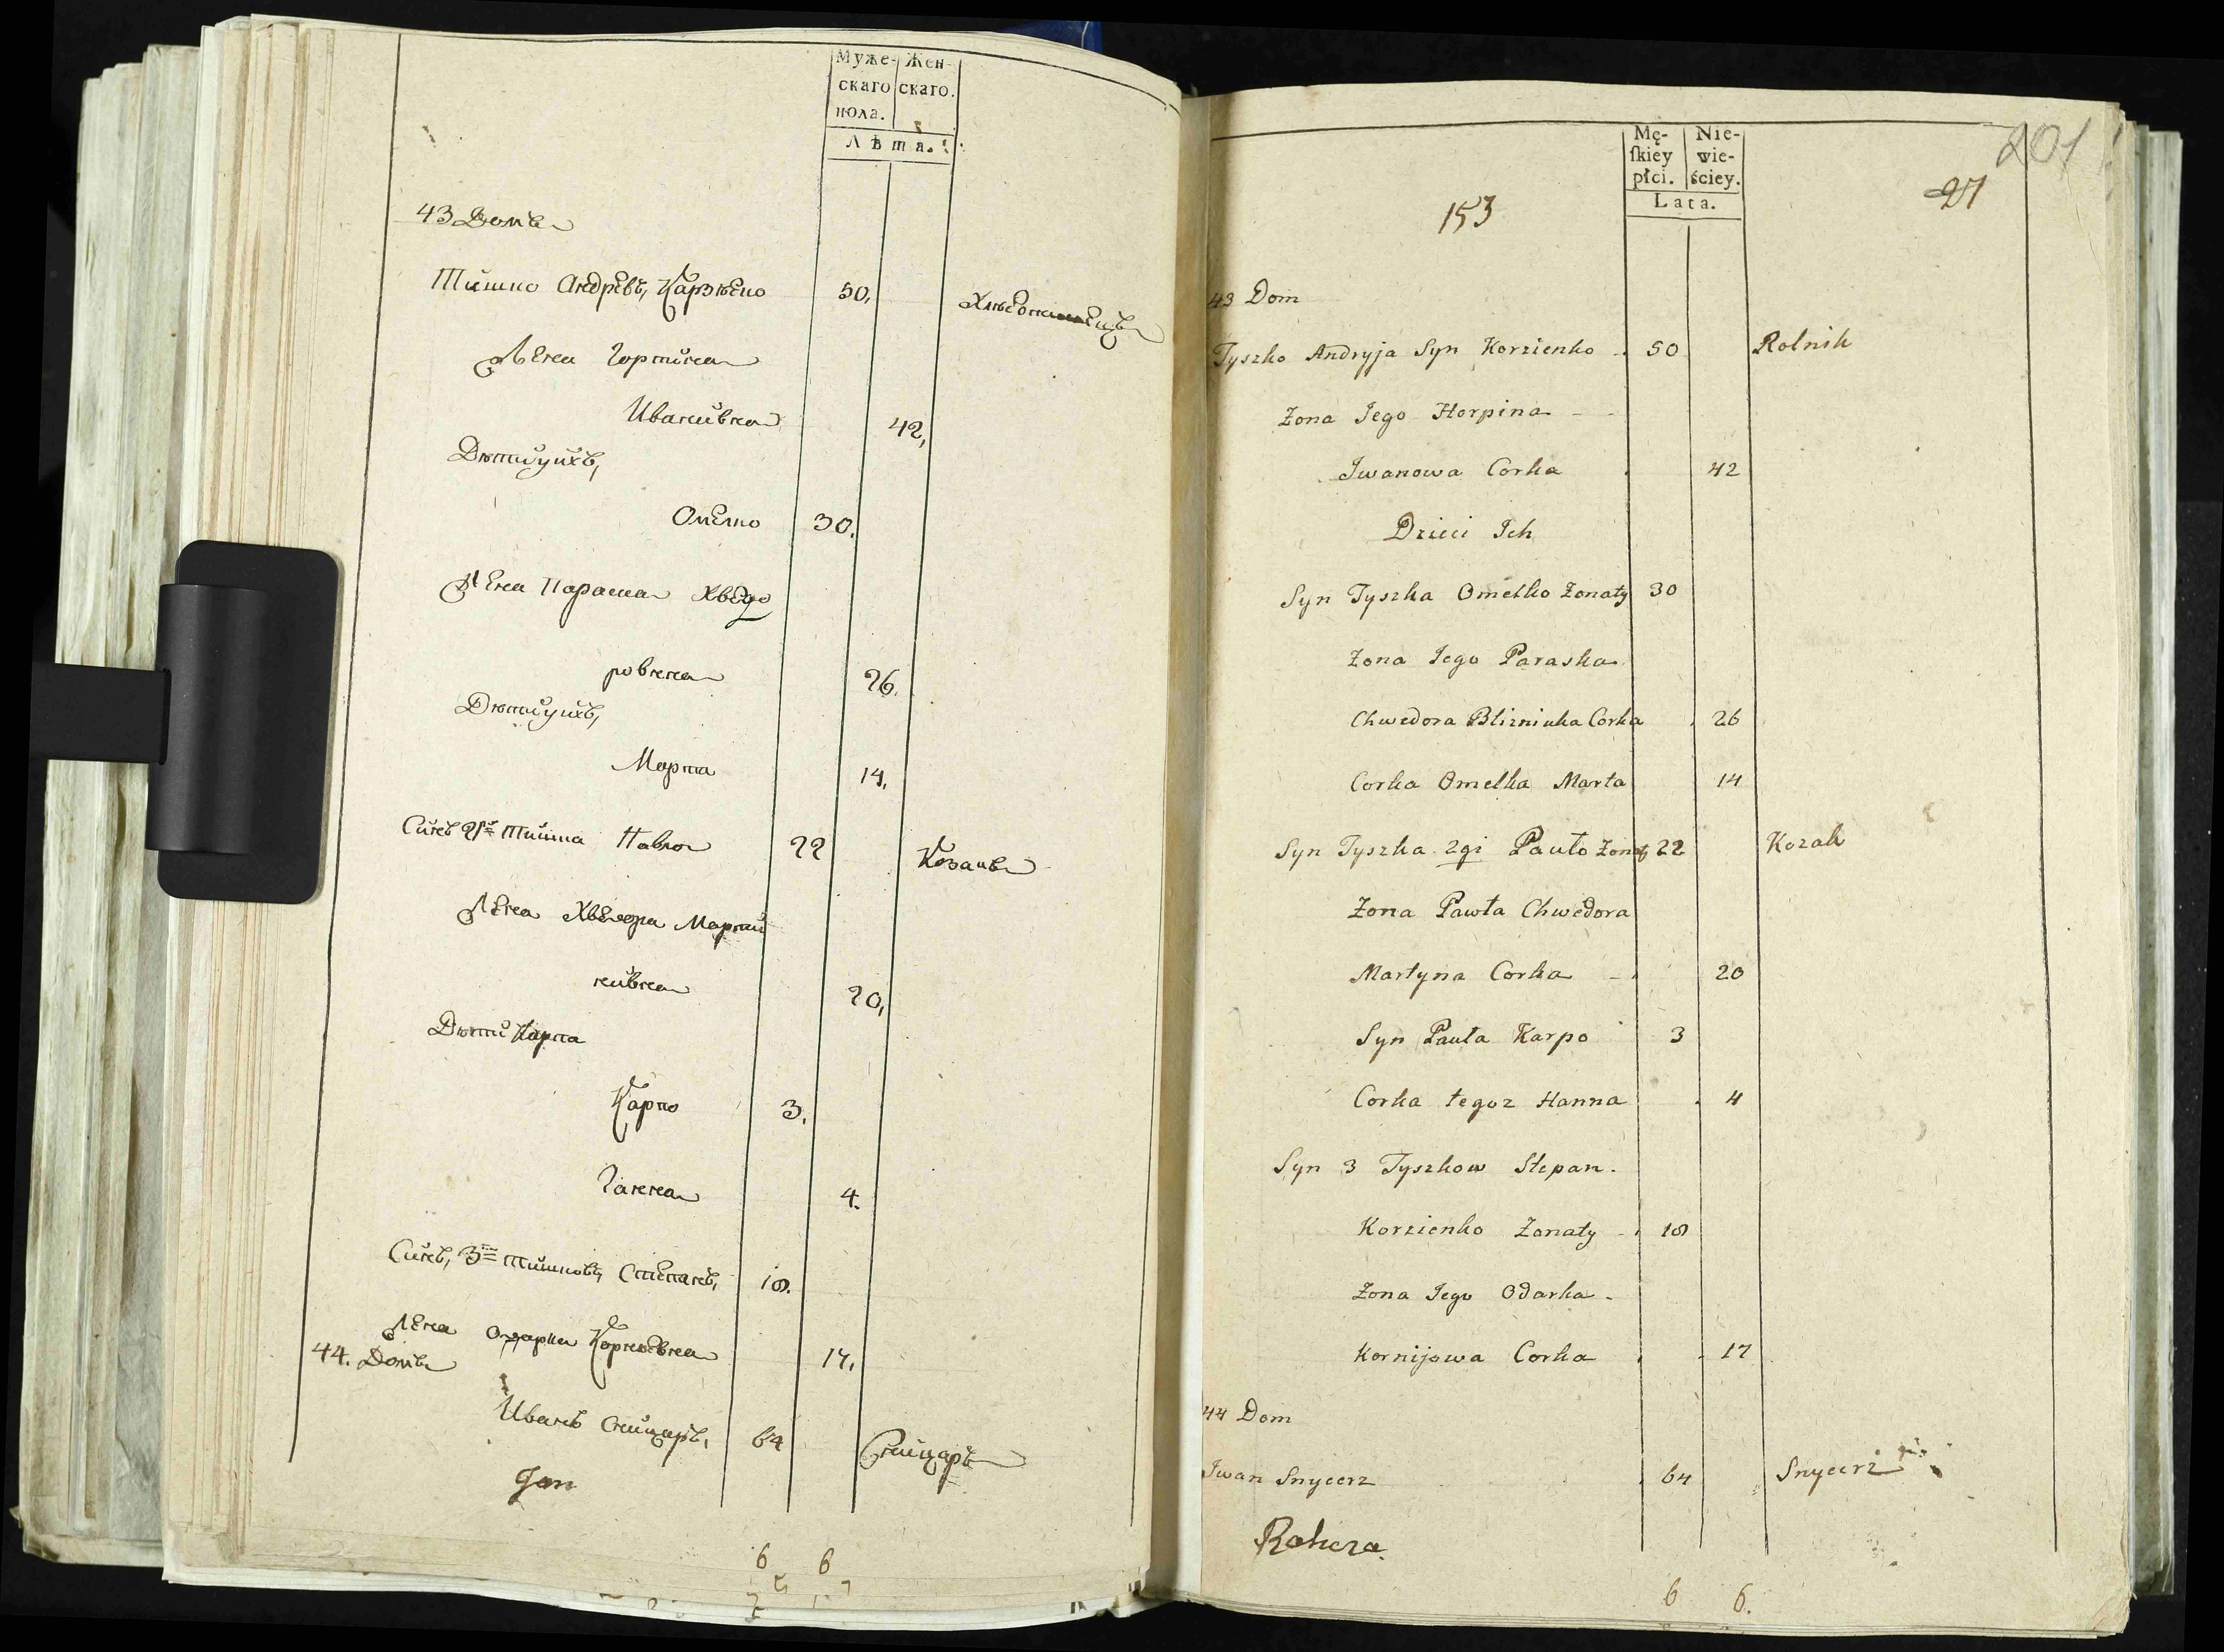 Муже- Жен-
скаго скаго.
пола.
Лѣта.
43 Домъ
Тишко Андрѣевъ, Карзѣнко 50,
Жена Горпина
Иванивна 42,
Дѣти ихъ,
Омелко 30.
Жена Параска Хведо
ровна 26.
Дѣти ихъ,
Марта 14,
Синъ 2й Тишка Павло 22 Козакъ
Жена Хведора Марти
нивна 20,
Дѣти Карпа
Карпо 3.
Ганна 4.
Синъ, 3й Тишковъ, Степанъ, 18.
Жена Одарка Корнѣевна 17,
44. Домъ
Иванъ Сницаръ, 64 Сницаръ
Jan
6 6
201
27
153
Mę- Nie-
skiey wie-
płci. ściey.
Lata.
43 Dom
Tyszko Andryja Syn Korzienko 50 Rolnik
Zona Jego Horpina
Jwanowa Corka 42
Dzieci Jch
Syn Tyszka Omelko Zonaty 30
Zona Jego Paraska
Chwedora Blizniuka Corka 26
Corka Omelka Marta 14
Syn Tyszka 2gi Pauło Zonaty 22 Kozak
Zona Pawła Chwedora
Martyna Corka 20
Syn Pauła Karpo 3
Corka tegoz Hanna 4
Syn 3 Tyszkow Stepan.
Korzienko Zonaty 18
Zona Jego Odarka
Kornijowa Corka 17
44 Dom
Jwan Snycerz 64 Snycerz
Rakuza.
6 6.